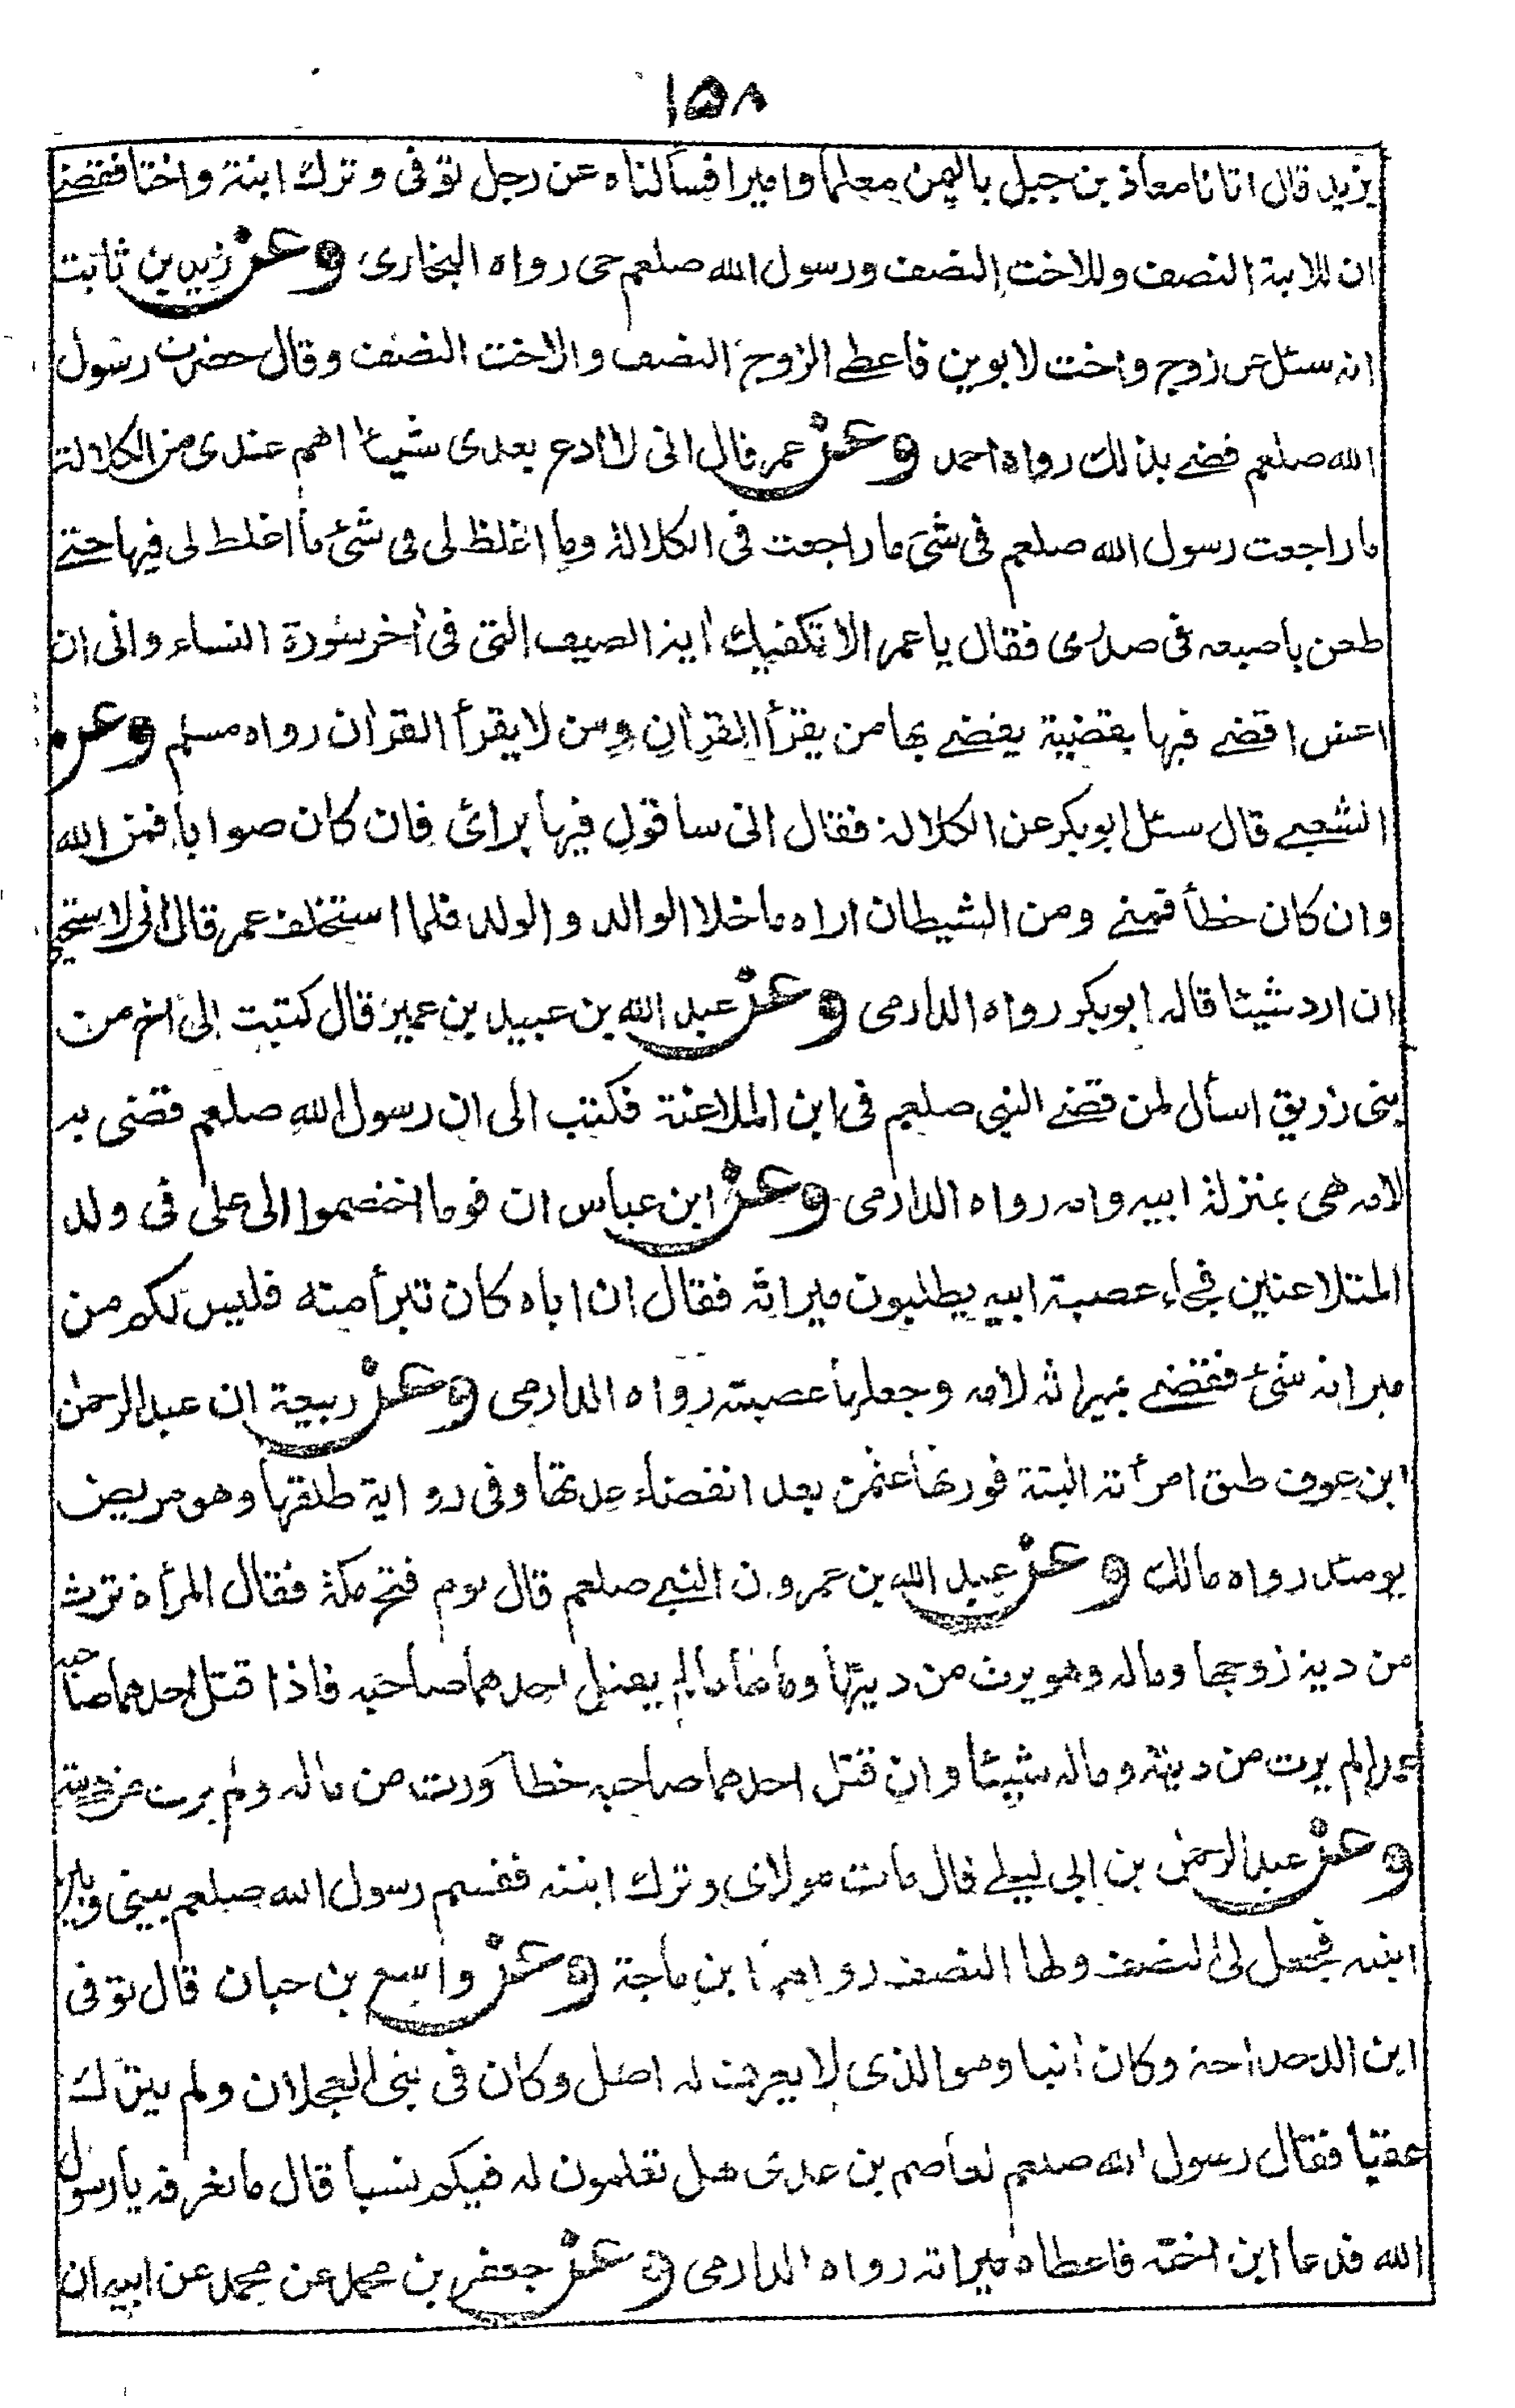 ١٥٨
يزيد قال اتانا معاذ بن جبل باليمن معلما واميرا فسألناه عن رجل توفى وترك ابنة واختا فقضے
ان للابنة النصف وللاخت النصف ورسول الله صلعم حى رواه البخارى وعن زيد بن ثابت
انه سئل عن زوج واخت لابوين فاعطے الزوج النصف والاخت النصف وقال حضرت رسول
الله صلعم قضے بذلك رواه احمد وعن عمر قال انى لا ادع بعدى شيئا اهم عندى من الكلالة
ما راجعت رسول الله صلعم فى شئ ما راجعت فى الكلالة وما اغلظ لى فى شئ ما اغلظ لى فيها حتے
طعن باصبعه فى صدرى فقال يا عمر الا تكفيك اية الصيف التى فى أخر سورة النساء وانى ان
اعش اقضے فيها بقضية يقضے بها من يقرأ القرأن ومن لا يقرأ القرأن رواه مسلم وعن
الشعبے قال سئل ابوبكر عن الكلالة فقال انى ساقول فيها برائى فان كان صوابا فمن الله
وان كان خطأ فمنے ومن الشيطان اراه ماخلا الوالد والولد فلما استخلف عمر قال انى لاستحيے
ان ارد شيئا قاله ابوبكر رواه الدارمى وعن عبد الله بن عبيد بن عمير قال كتبت الى اخ من
بنى زريق اسأل لمن قضے النبى صلعم فى ابن الملاعنة فكتب الى ان رسول الله صلعم قضى به
لامه هى بمنزلة ابيه وامه رواه الدارمى وعن ابن عباس ان قوما اختصموا الى على فى ولد
المتلاعنين فجاء عصبة ابيه يطلبون ميراثه فقال ان اباه كان تبرأ منه فليس لكم من
ميراثه شئ فقضے بميراثه لامه وجعلها عصبته رواه الدارمى وعن ربيعة ان عبد الرحمٰن
ابن عوف طلق امرأته البتة فورثها عثمن بعد انقضاء عدتها وفى رواية طلقها وهو مريض
يومئذ رواه مالك وعن عبد الله بن عمرو ن النبے صلعم قال يوم فتح مكة فقال المرأة ترث
من دية زوجها وماله وهو يرث من ديتها ومالها مالم يقتل احدهما صاحبه فاذا قتل احدهما صاحبه
عمدا لم يرث من ديته وماله شيئا وان قتل احدهما صاحبه خطأ ورث من ماله ولم يرث من ديته
وعن عبد الرحمٰن بن ابى ليلے قال مات مولاى وترك ابنته فقسم رسول الله صلعم بينى وبين
ابنته فجعل لى النصف ولها النصف رواهما ابن ماجة وعن واسع بن حبان قال توفى
ابن الدحداحة وكان اتيا وهو الذى لا يعرف له اصل وكان فى بنى العجلان ولم يترك
عقبا فقال رسول الله صلعم لعاصم بن عدى هل تعلمون له فيكم نسبا قال ما نعرفه يا رسول
الله فدعا ابن اخته فاعطاه ميراثه رواه الدارمى وعن جعفر بن محمد عن محمد عن ابيه ان